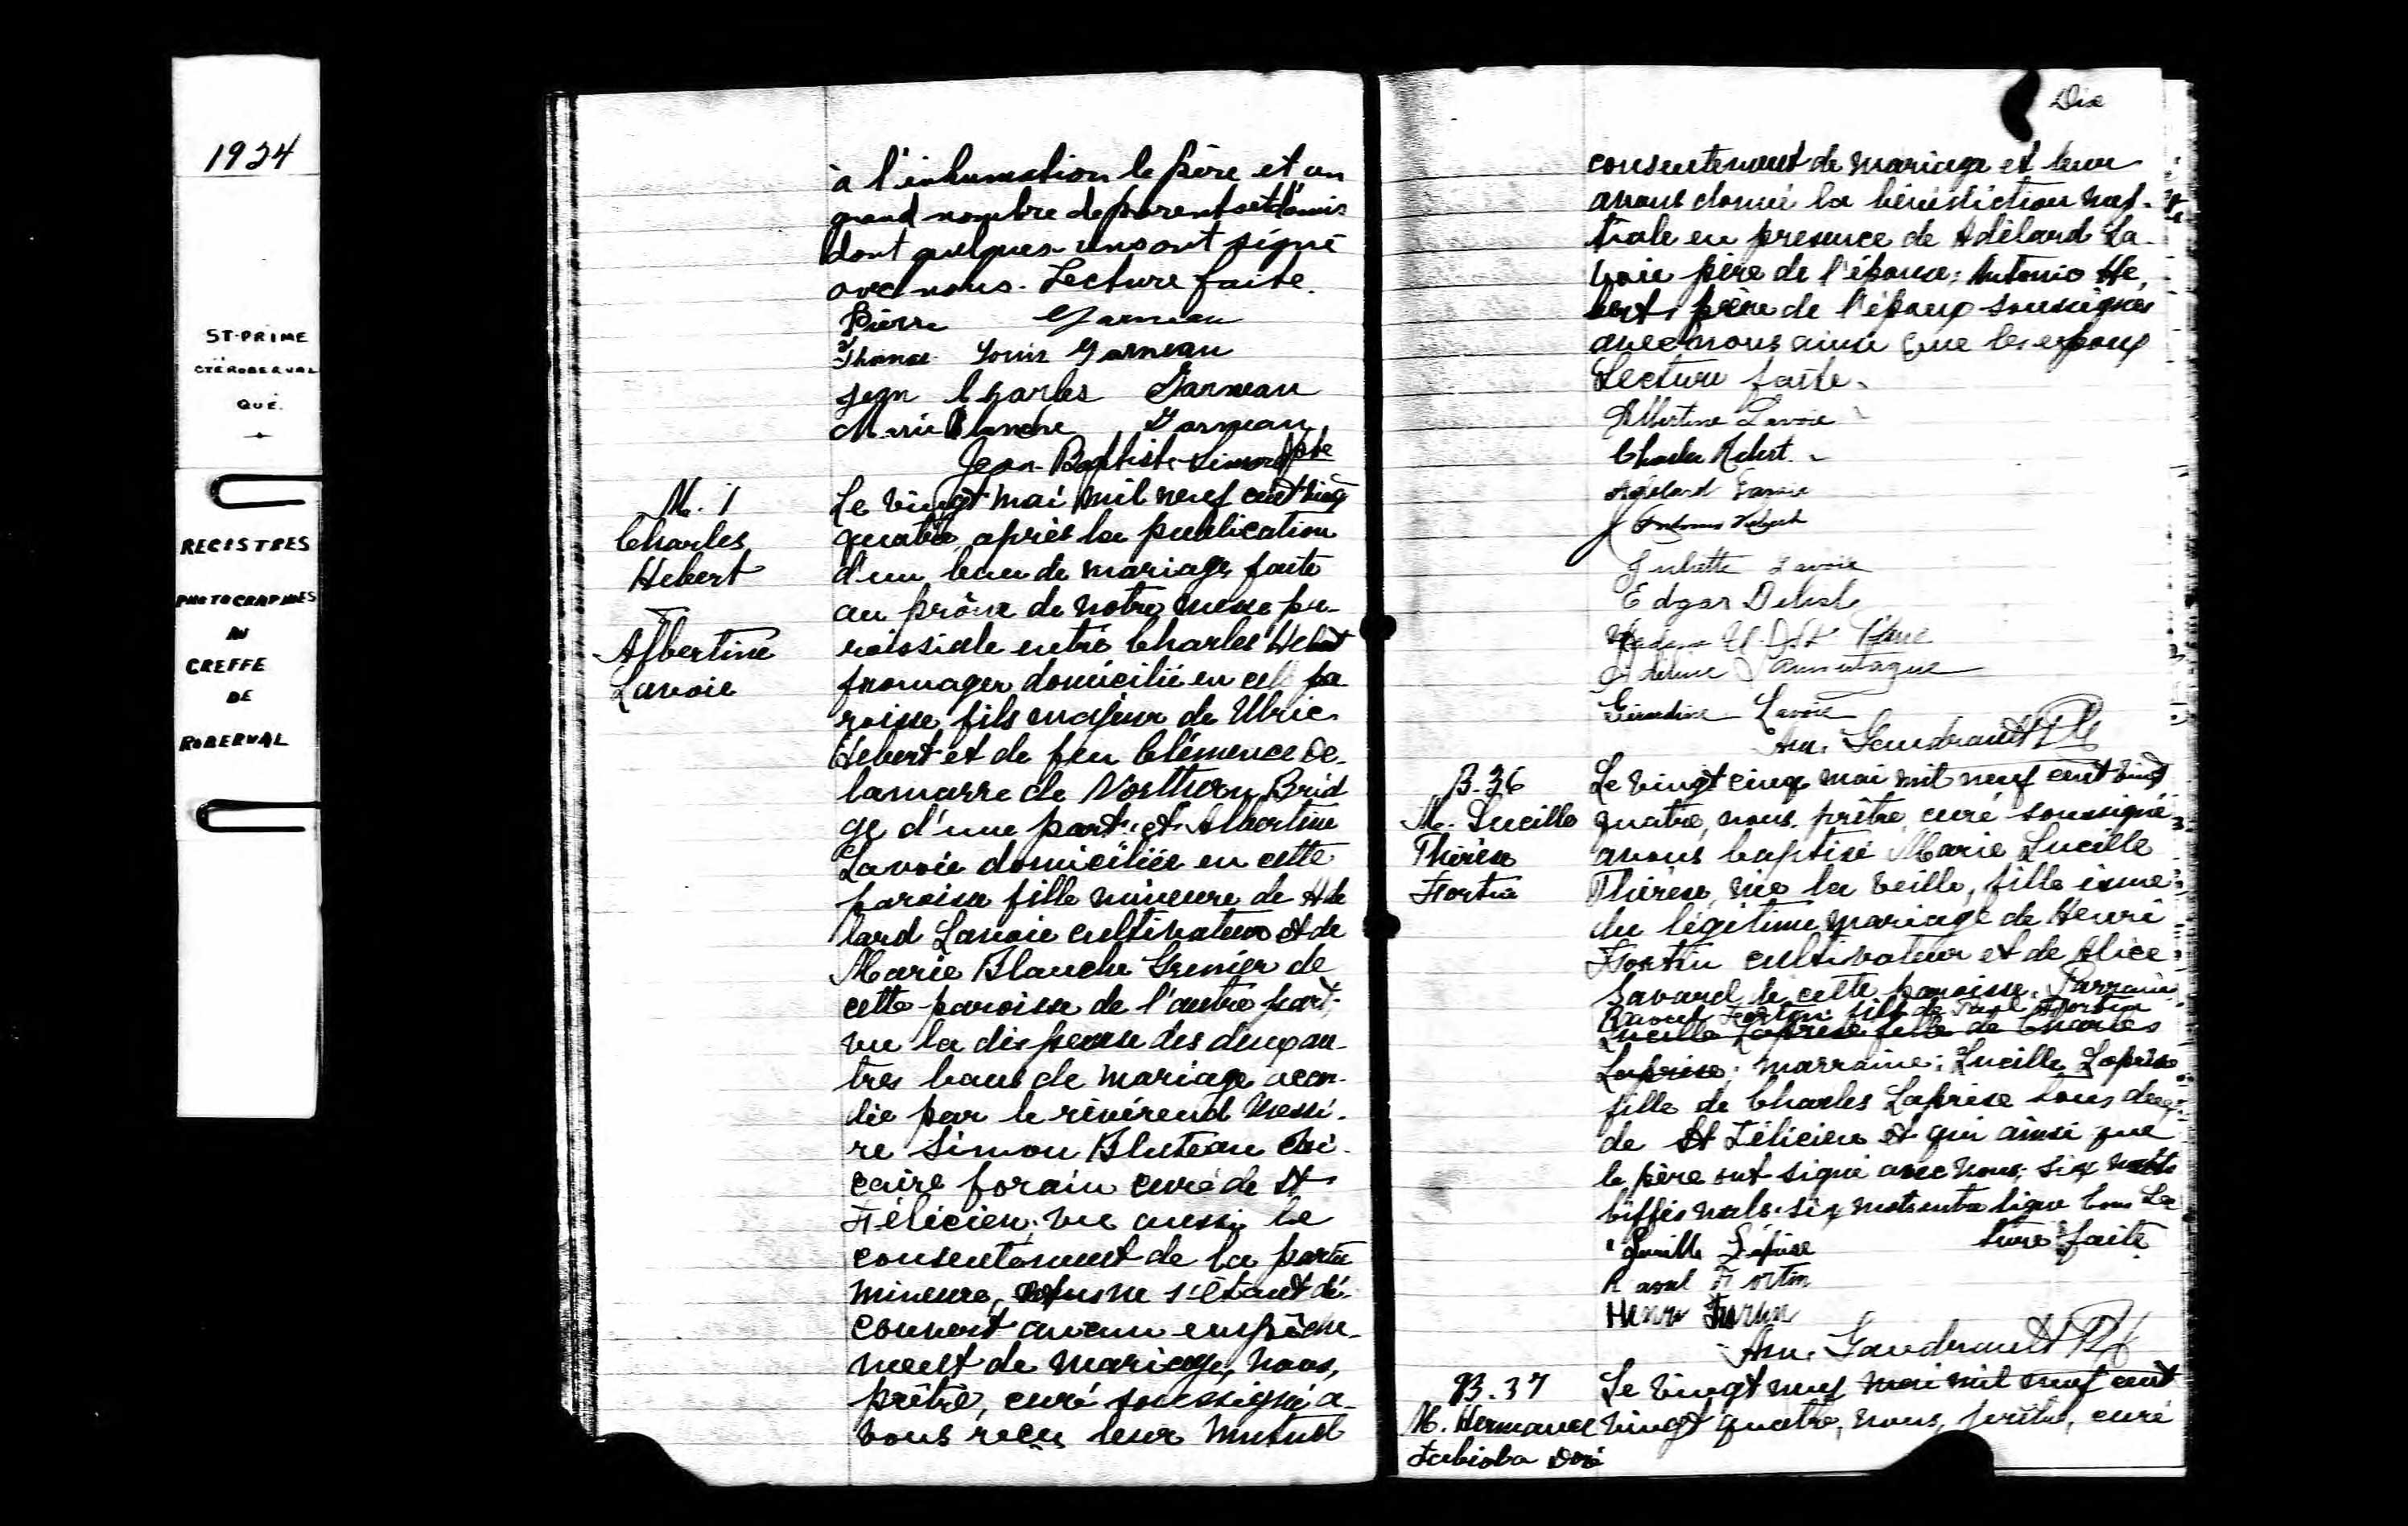 1924
ST-PRIME
CTÉ ROBERVAL
QUÉ.
REGISTRES
PHOTOGRAPHIES
AU
GREFFE
DE
ROBERVAL
à l'inhumation le père et un
grand nombre de parents et d'amis
dont quelques-uns ont signé
avec nous. Lecture faite.
Pierre Garneau
Thomas Louis Garneau
Jean Charles Garneau
Marie Blanche Garneau
Jean-Baptiste Simard ptre
M. 1
Charles
Hebert
&
Albertine
Lavoie
Le vingt mai mil neuf cent vingt
quatre, après la publication
d'un ban de mariage faite
au prône de notre messe pa-
roissiale entre Charles Hebert
fromager domicilié en cette pa
roisse fils majeur de Ulric
Hebert et de feu Clémence De-
lamarre de Northern Brid
ge d'une part; et Albertine
Lavoie domiciliée en cette
paroisse fille mineure de Adé
lard Lavoie cultivateur et de
Marie Blanche Grenier de
cette paroisse de l'autre part;
vu la dispense des deux au-
tres bans de mariage accor-
dée par le révérend Messi-
re Simon Bluteau vi-
caire forain curé de St
Félicien; vu aussi le
consentement de la partie
mineure, ne s'étant dé-
couvert aucun empêche-
ment de mariage, nous,
prêtre, curé soussigné a-
vons reçu leur mutuel
Dix
consentement de mariage et leur
avons donné la bénédiction nup-
tiale en presence de Adélard La-
voie père de l'épouse; Antonio He,
bert, frère de l'époux soussignés
avec nous ainsi que les époux
Lecture faite.
Albertine Lavoie
Charles Hebert.
Adélard Lavoie
J Antonio Hebert
Juliette Lavoie
Edgar Delisle
Madame
Lavoie
Am. Gaudreault Ptre
B. 36
M. Lucille
Thérèse
Fortin
Le vingt cinq mai mil neuf cent vingt
quatre, nous, prêtre, curé soussigné
avons baptisé Marie Lucille
Thérèse, née la veille, fille issue
du légitime mariage de Henri
Fortin cultivateur et de Alice
Savard de cette paroisse. Parrain
Raoul Fortin fils de Paul Fortin
Lucille Laprise fille de Charles
Laprise; marraine: Lucille Laprise
fille de Charles Laprise tous deux
de St Félicien et qui ainsi que
le père ont signé avec nous; six mots
biffés nuls. six mots entre ligne bons Lec
ture faite
Lucille Laprise
Raoul Fortin
Henri Fortin
Am. Gaudreault Ptre
B. 37
M. Hermance
Fabiola Doré
Le vingt neuf mai mil neuf cent
vingt quatre, nous, prêtre, curé